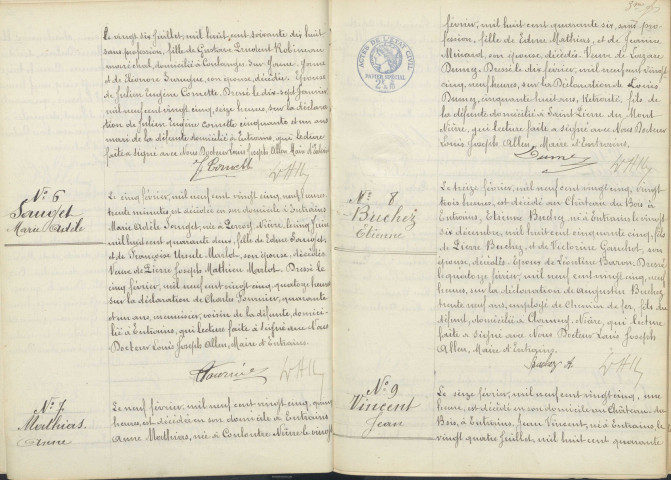 le vingt six juillet, mil huit cent soixante dix huit
sans profession, fille de Prudent Robineau
maréchal, domicilié à
et de Eléonore son épouse, décédée. Epouse
de Julien Eugène Cornette. Dressé le dix-sept Janvier
mil neuf cent vingt cinq, seize heures, sur la déclara
tion de Julien Eugène Cornette cinquante et un ans
mari de la défunte domicilié à Entrains, qui Lecture
faite a signé avec Nous Docteur Louis Joseph Allen, Maire d'Entrains
J. Cornette
N° 6
Marie Adèle
Le cinq février, mil neuf cent vingt cinq, neuf heures
trente minutes est décédée en son domicile à Entrains
Marie Adèle née à Nièvre, le cinq Juin
mil huit cent quarante deux, fille de Edme
et de Françoise Ursule Marlot, son épouse, décédés
Veuve de Pierre Joseph Mathieu Marlot. Dressé le
cinq février, mil neuf cent vingt cinq quatorze heures
sur la déclaration de Charles Fournier, quarante
et un ans, menuisier, voisin de la défunte, domici-
lié à Entrains, qui Lecture faite a signé avec Nous
Docteur Louis Joseph Allen, Maire d'Entrains
Fournier
N° 7
Mathias
Anne
Le neuf février, mil neuf cent vingt cinq,
heures, est décédée en son domicile à Entrains
Anne Mathias, née à Couloutre Nièvre le vingt
février, mil huit cent quarante six, sans pro
fession, fille de Edme Mathias, et de Jeanne
Minard, son épouse, décédés. Veuve de Lazare
Dumeq. Dressé le dix février, mil neuf cent vingt
cinq, neuf heures, sur la déclaration de Louis
Dumeq, cinquante huit ans, Retraité, fils de
la défunte domicilié à Saint Pierre du Mont
Nièvre, qui Lecture faite a signé avec Nous Docteur
Louis Joseph Allen, Maire d'Entrains
ACTES DE L'ETAT CIVIL
PAPIER SPECIAL
N° 8
Buchez
Etienne
Le treize février, mil neuf cent vingt cinq, vingt
trois heures, est décédé au Château du Bois à
Entrains, Etienne Buchez, né à Entrains le vingt
six décembre, mil huit cent cinquante cinq, fils
de Pierre Buchez, et de Victorine Gauchot, son
épouse, décédés. Epoux de Léontine Baron. Dressé
le quatorze février, mil neuf cent vingt cinq, neuf
heures, sur la déclaration de Augustin Buchez
trente neuf ans, employé de Chemin de fer, fils du
défunt, domicilié à Clamecy, Nièvre, qui Lecture
faite a signé avec Nous Docteur Louis Joseph
Allen, Maire d'Entrains
Buchez A.
N° 9
Vincent
Jean
Le seize février, mil neuf cent vingt cinq, une
heure, est décédé en son domicile au Château du
Bois, à Entrains, Jean Vincent, né à Entrains, le
vingt quatre Juillet, mil huit cent quarante